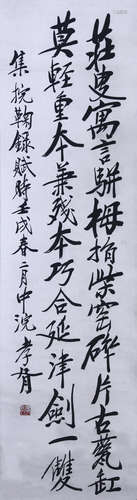 莊叟寓言駢拇指柴窑碎片古甕缸
莫輕重本兼殘本巧合延津劍一雙
集挽鞠錄賦駢壬戌春二月中浣孝胥